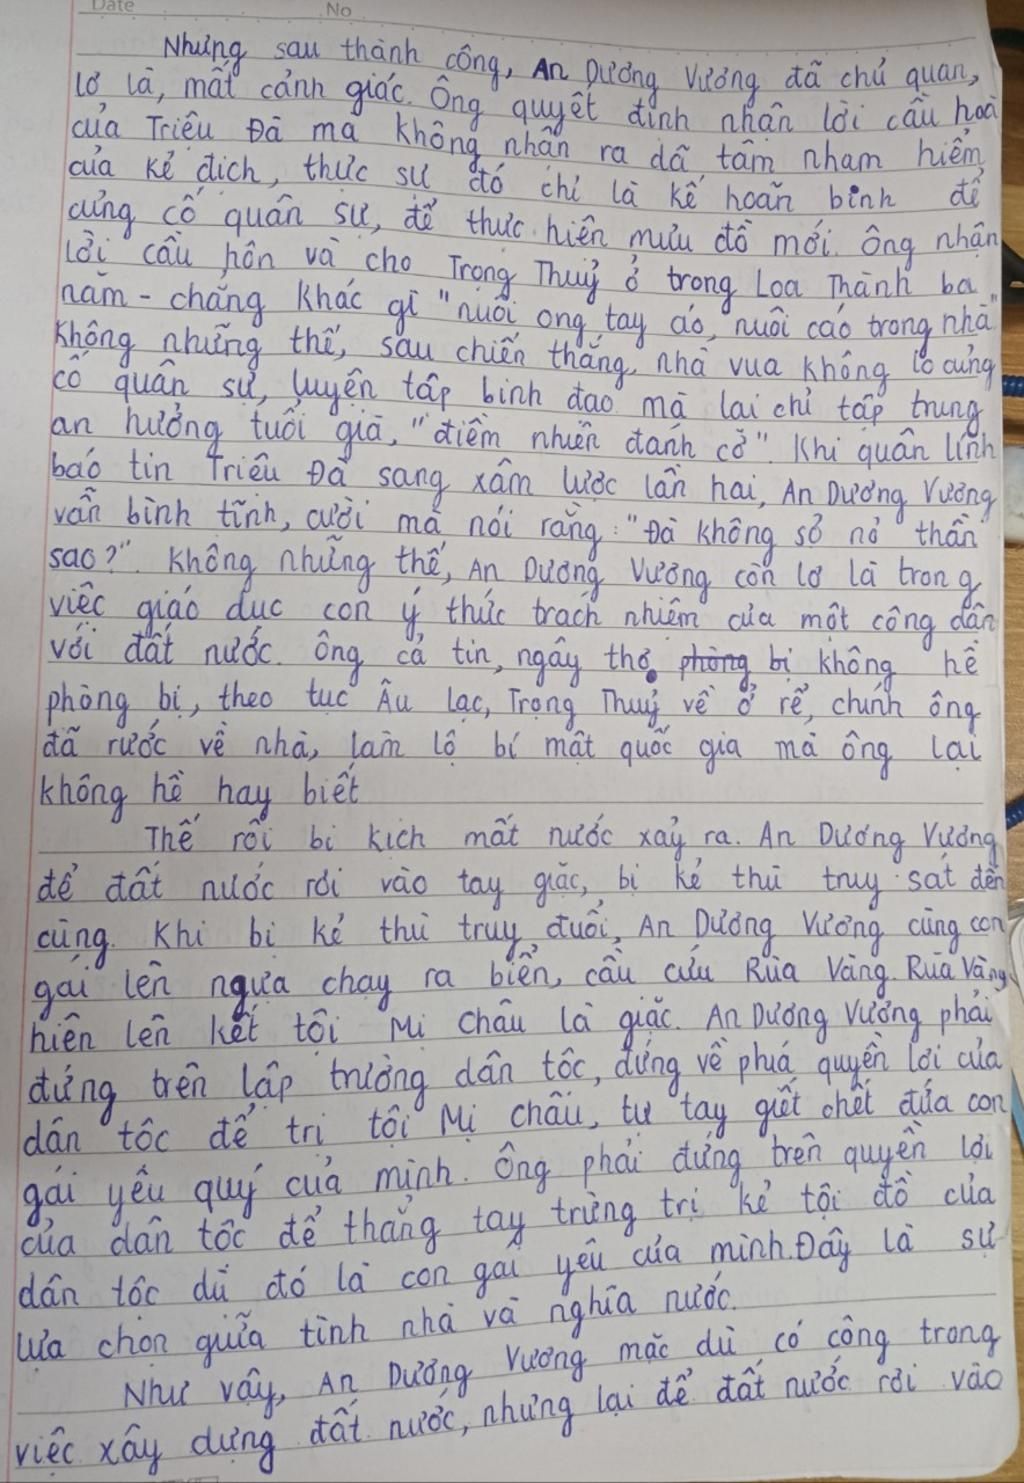 Date No
Nhưng sau thành công, An Dương Vương đã chủ quan,
lơ là, mất cảnh giác. Ông quyết định nhận lời cầu hoà
của Triệu Đà mà không nhận ra dã tâm nham hiểm
của kẻ địch, thực sự đó chỉ là kế hoãn binh để
củng cố quân sự, để thực hiện mưu đồ mới. Ông nhận
lời cầu hôn và cho Trọng Thuỷ ở trong Loa Thành ba
năm - chẳng khác gì "nuôi ong tay áo, nuôi cáo trong nhà"
Không những thế, sau chiến thắng, nhà vua không lo củng
cố quân sự, luyện tập binh đao mà lại chỉ tập trung
an hưởng tuổi già, "điềm nhiên đánh cờ". Khi quân lính
báo tin Triệu Đà sang xâm lược lần hai, An Dương Vương
vẫn bình tĩnh, cười mà nói rằng: "Đà không sợ nỏ thần
sao?". Không những thế, An Dương Vương còn lơ là trong
việc giáo dục con ý thức trách nhiệm của một công dân
với đất nước. Ông cả tin, ngây thơ phòng bị không hề
phòng bị, theo tục Âu Lạc, Trọng Thuỷ về ở rể, chính ông
đã rước về nhà, làm lộ bí mật quốc gia mà ông lại
không hề hay biết
Thế rồi bi kịch mất nước xảy ra. An Dương Vương
để đất nước rơi vào tay giặc, bị kẻ thù truy sát đến
cùng. Khi bị kẻ thù truy đuổi, An Dương Vương cùng con
gái lên ngựa chạy ra biển, cầu cứu Rùa Vàng. Rùa Vàng
hiện lên kết tội Mị Châu là giặc. An Dương Vương phải
đứng trên lập trường dân tộc, đứng về phiá quyền lợi của
dân tộc để trị tội Mị Châu, tự tay giết chết đứa con
gái yêu quý của mình. Ông phải đứng trên quyền lợi
của dân tộc để thẳng tay trừng trị kẻ tội đồ của
dân tộc dù đó là con gái yêu của mình. Đây là sự
lựa chọn giữa tình nhà và nghĩa nước.
Như vậy, An Dương Vương mặc dù có công trong
việc xây dựng đất nước, nhưng lại để đất nước rơi vào